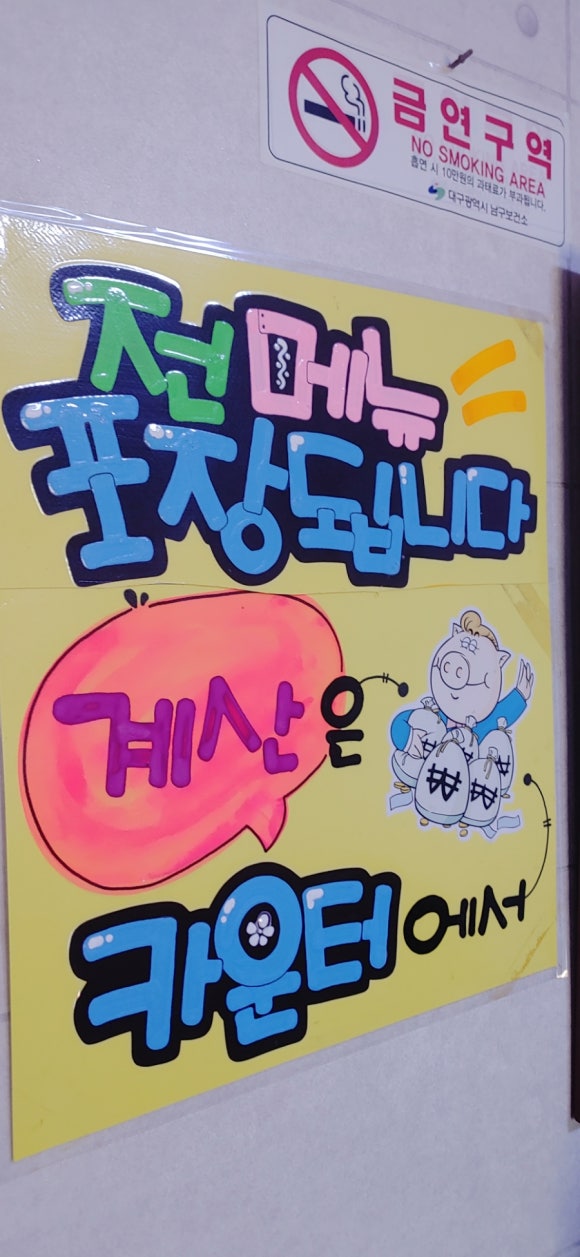 금연구역
NO SMOKING AREA
흡연 시 10만원의 과태료가 부과됩니다.
대구광역시 남구보건소
전메뉴
포장됩니다
계산은
카운터에서